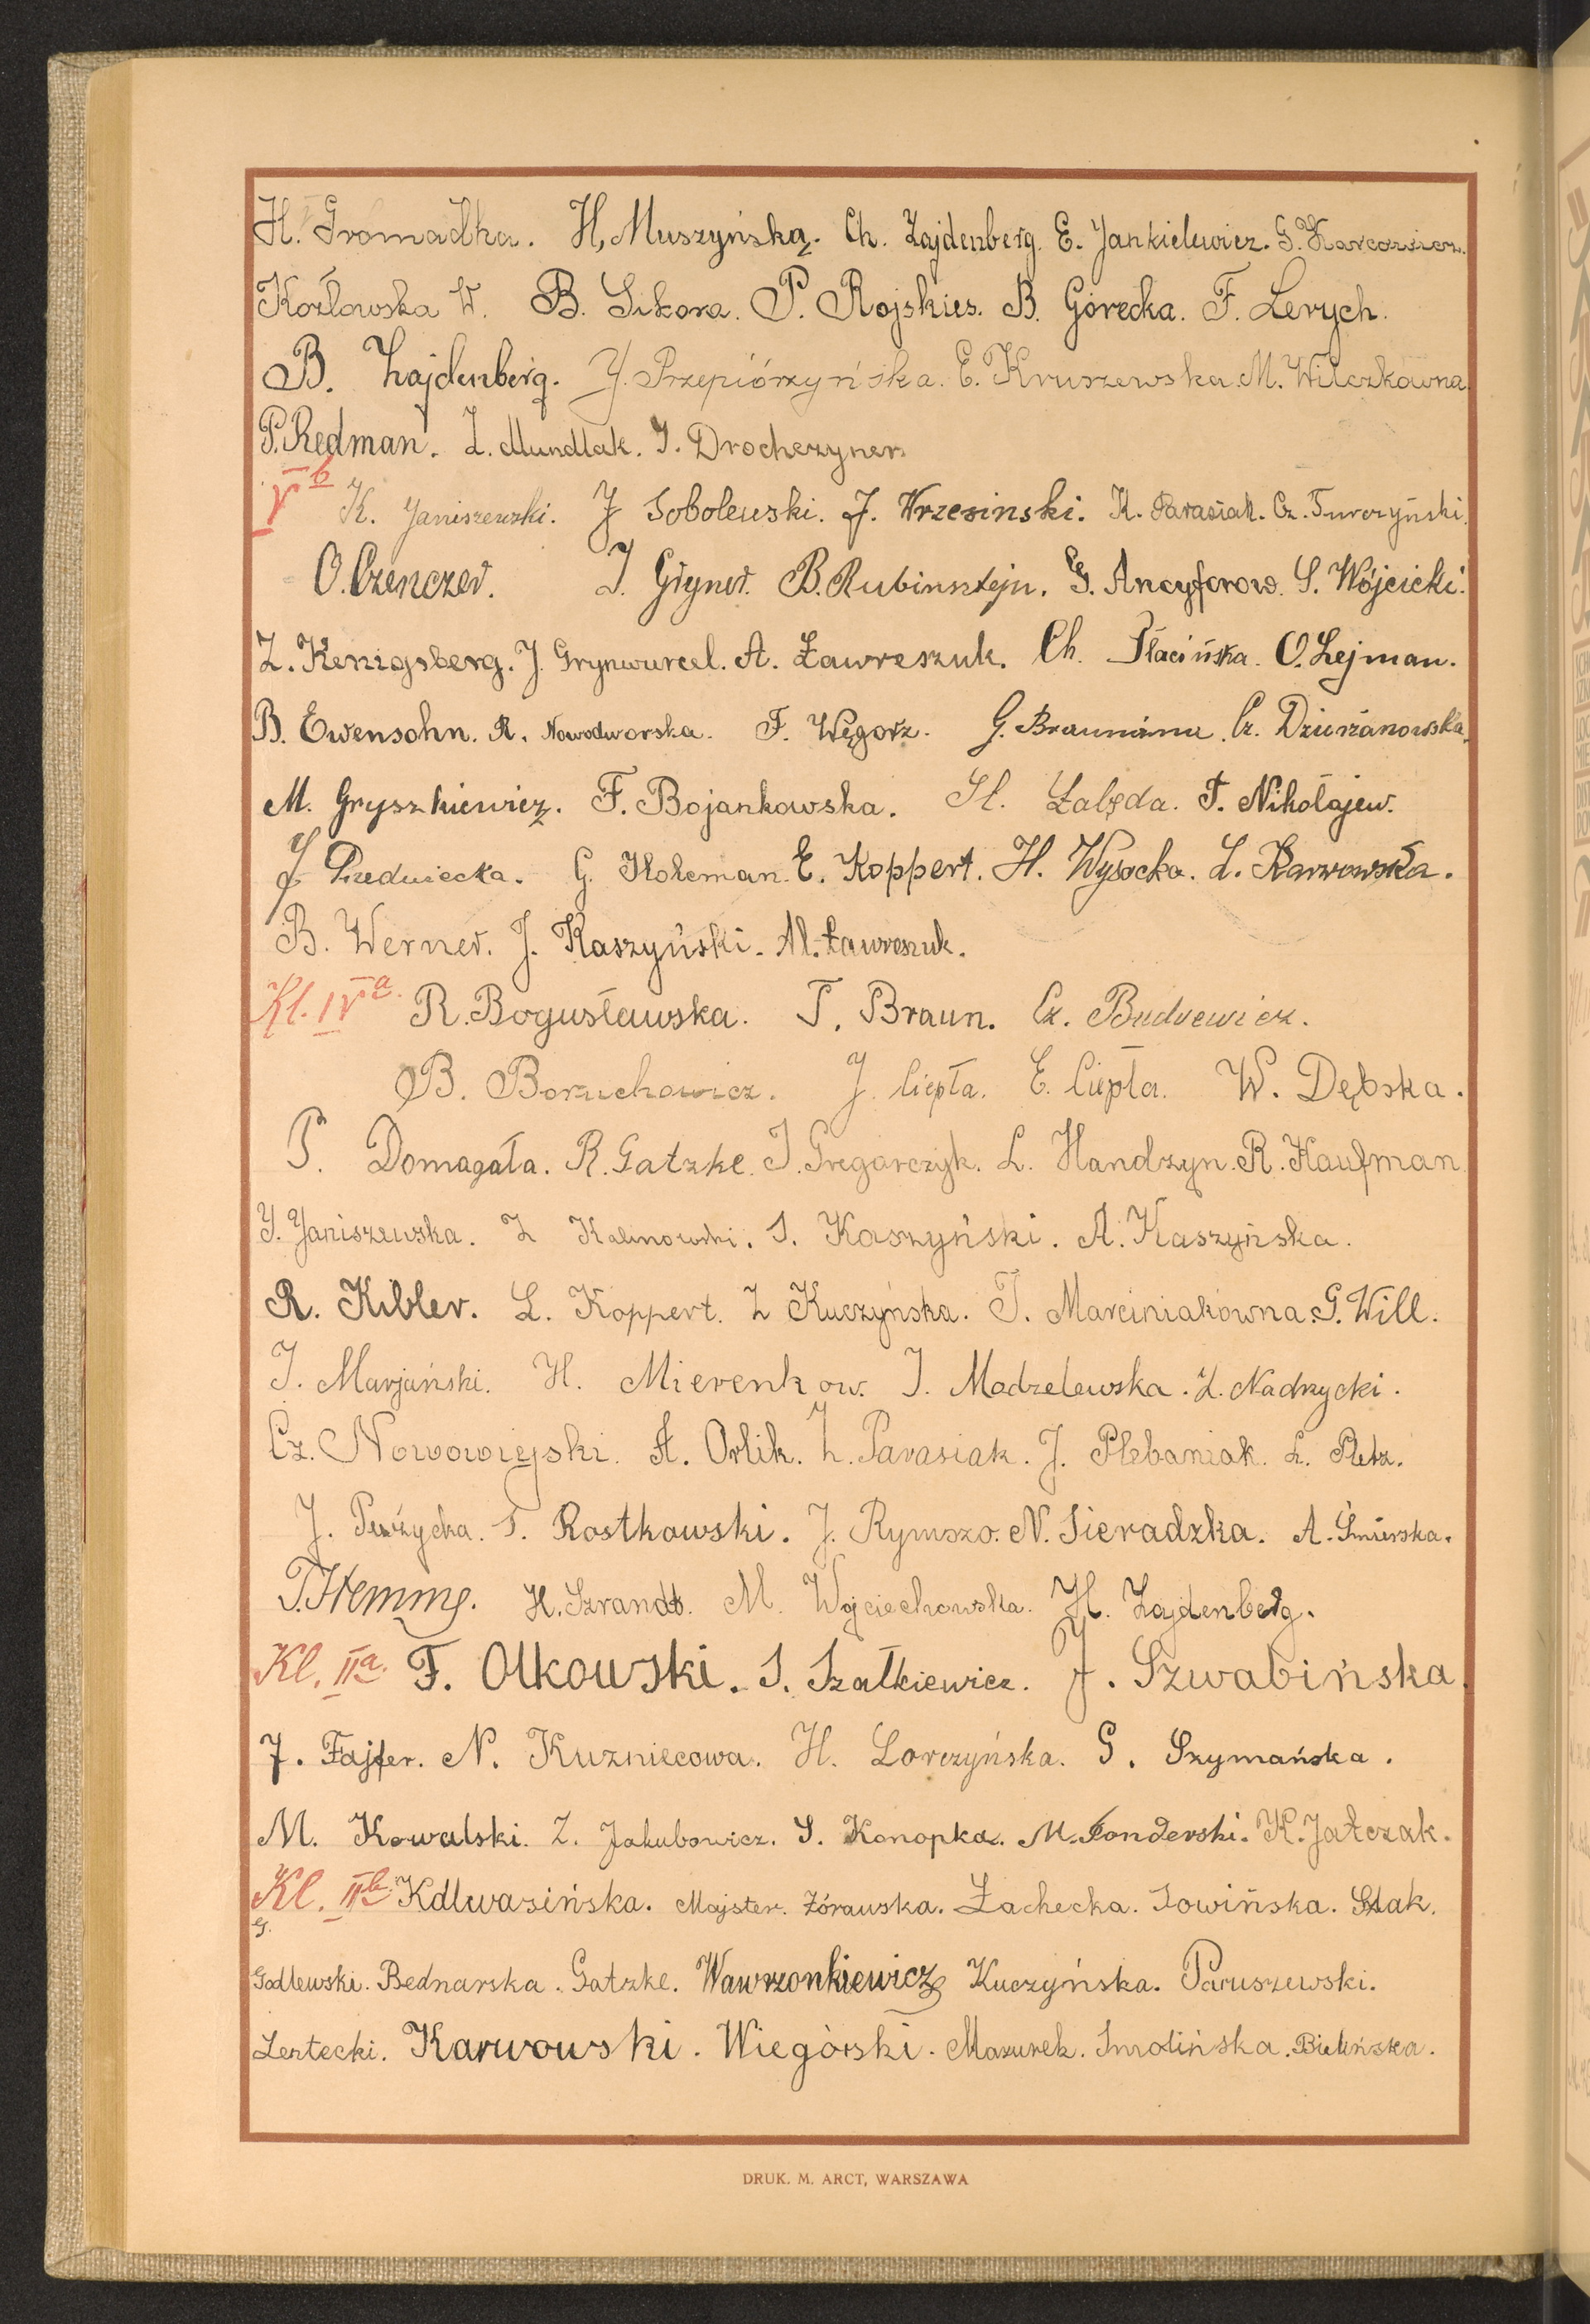 H. Gromadka. H. Muszyńska. Ch. Zajdenberg. E. Jankielewicz. S.
Kozłowska W. B. Sikora. P. Rojskies. B. Górecka. F. Lerych.
B. Zajdenberg. J. Przepiórzyńska. E. Kruszewska. M. Wilczkówna.
P. Redman. L. Mundlak. J. Drochezyner.
V b K. Janiszewski. J Sobolewski. J. Wrzesinski. K. Parasiak. Cz. Turczyński.
O. Czenczer. J. Gryner. B. Rubinsztejn. G. Ancyforow. S. Wójcicki.
Z. Kenigsberg. J. Grynwurcel. A. Ławreszuk. Ch. Płacińska. O. Lejman.
B. Ewensohn. R. Nowodworska. F. Węgorz. G. Cz. Dziurżanowska.
M. Gryszkiewicz. F. Bojankowska. H. Zalęda. T. Nikołajew.
J G. Holcman. E. Koppert. H. Wysocka. L. Karwowska.
B. Werner. J. Kaszyński. Al. Ławreszuk.
Kl. IV a. R. Bogusławska. T. Braun. Cz. Budrewicz.
B. Boruchowicz. J. Ciepła. E. Ciepła. W. Dębska.
P. Domagała. R. Gatzke. J. Gregorczyk. L. Handzyn. R. Kaufman
J. Janiszewska. Z Kalinowski. S. Kaszyński. A. Kaszyńska.
R. Kibler. L. Koppert. Z Kuczyńska. T. Marciniakówna. G. Will.
J. Marjański. H. Mierenkow. J. Modzelewska. Z. Nadrzycki.
Cz. Nowowiejski. A. Orlik. Z. Parasiak. J. Plebaniak. L. Pletz.
J. Purzycka. T. Rostkowski. J. Rymszo. N. Sieradzka. A. Śmierska.
T. Hemme. H. Szrandt. M. Wojciechowska. H. Zajdenberg.
Kl. II a. F. Olkowski. S. Szałkiewicz. J. Szwabińska.
J. Fajfer. N. Kuzniecowa. H. Lorczyńska. G. Szymańska.
M. Kowalski. Z. Jakubowicz. S. Konopka. M. Fonderski. K. Jatczak.
Kl. II b. Kdlwasińska. Majster. Żórawska. Żachecka. Sowińska. Szlak.
G.
Godlewski. Bednarska. Gatzke. Wawrzonkiewicz Kuczyńska. Paruszewski.
Lertecki. Karwowski. Wiegórski. Mazurek. Smolińska. Bielińska.
DRUK. M. ARCT, WARSZAWA